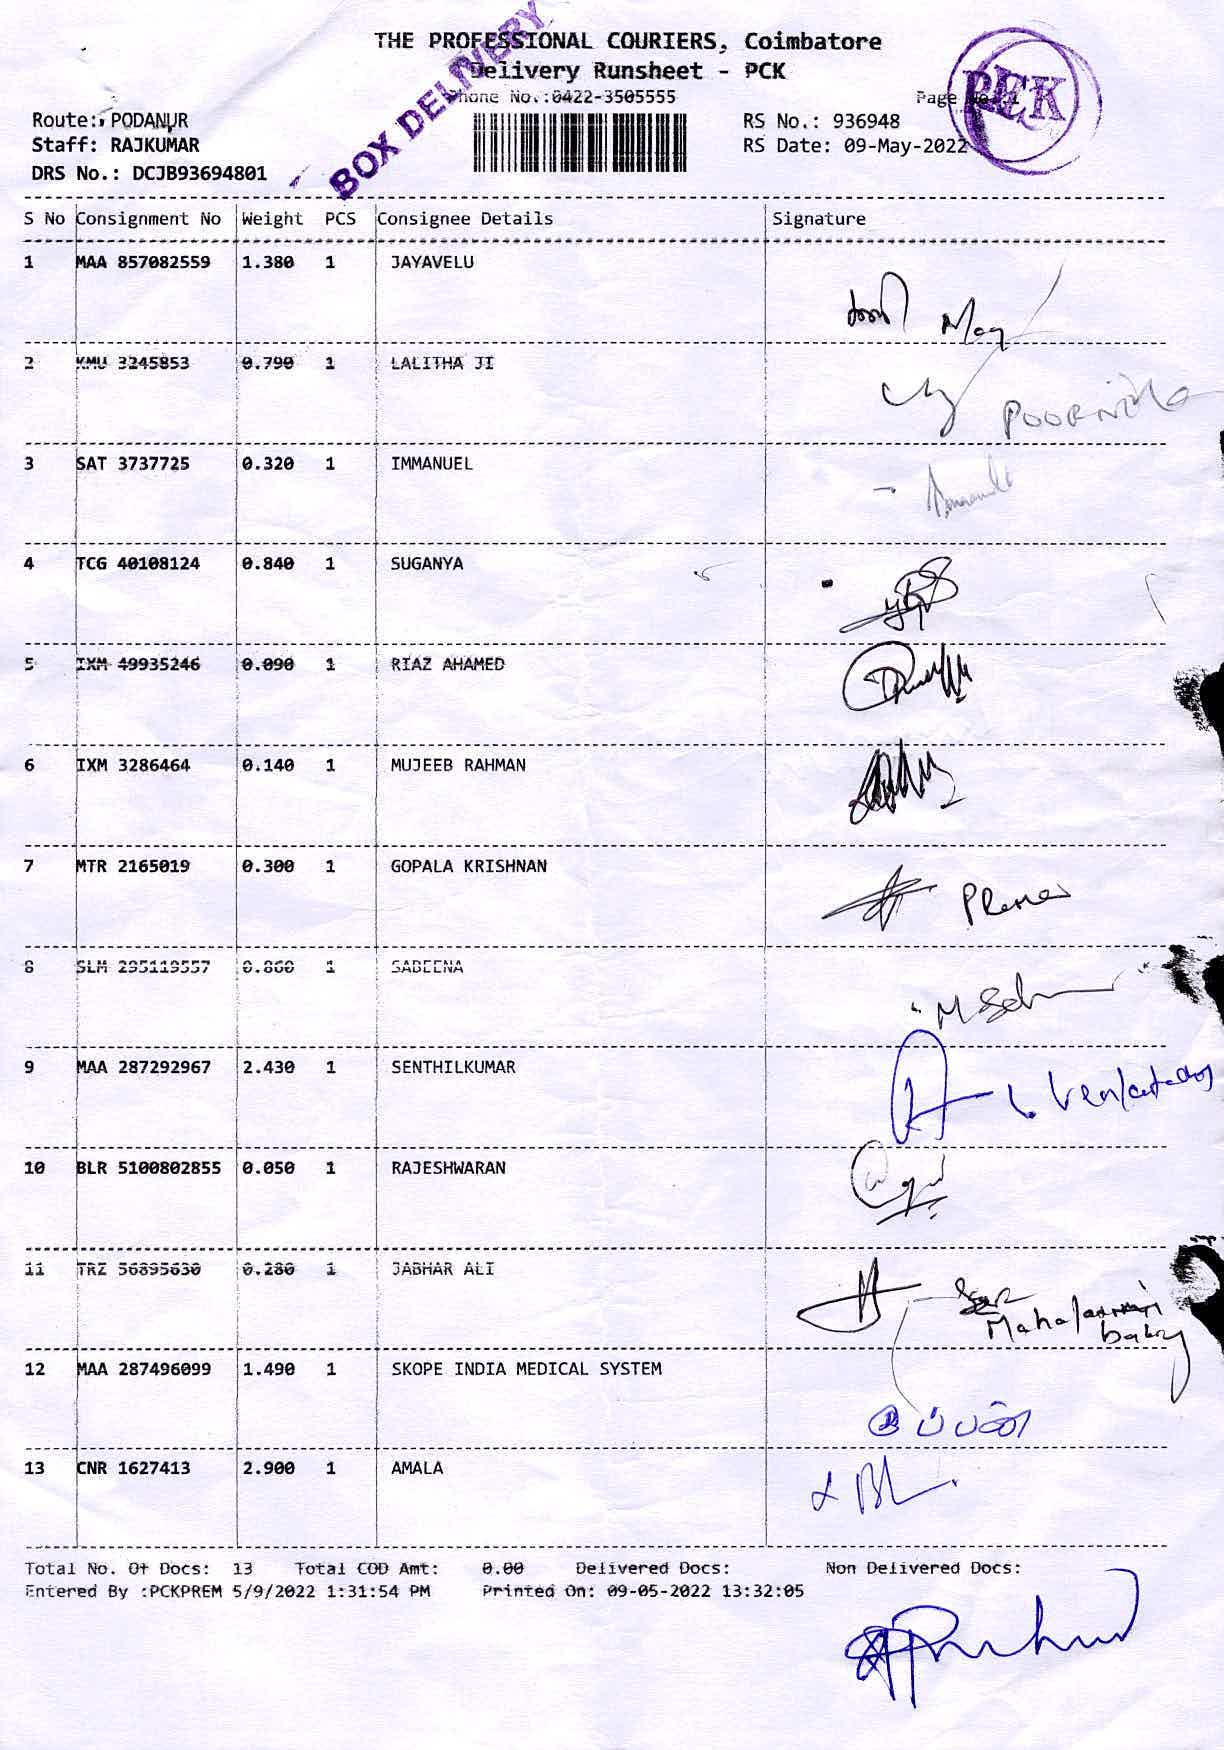 THE PROFESSIONAL COURIERS, Coimbatore
Delivery Runsheet - PCK
Phone No.:0422-3505555
Page No.:1
BOX DELIVERY
PCK
Route: PODANUR
Staff: RAJKUMAR
DRS No.: DCJB93694801
RS No.: 936948
RS Date: 09-May-2022
S No Consignment No Weight PCS Consignee Details Signature
1 MAA 857082559 1.380 1 JAYAVELU
2 KMU 3245853 0.790 1 LALITHA JI
3 SAT 3737725 0.320 1 IMMANUEL
4 TCG 40108124 0.840 1 SUGANYA
5 IXM 49935246 0.090 1 RIAZ AHAMED
6 IXM 3286464 0.140 1 MUJEEB RAHMAN
7 MTR 2165019 0.300 1 GOPALA KRISHNAN
8 SLM 295119557 0.860 1 SABEENA
9 MAA 287292967 2.430 1 SENTHILKUMAR
10 BLR 5100802855 0.050 1 RAJESHWARAN
11 TRZ 56895630 0.280 1 JABHAR ALI
12 MAA 287496099 1.490 1 SKOPE INDIA MEDICAL SYSTEM
13 CNR 1627413 2.900 1 AMALA
Total No. Of Docs: 13 Total COD Amt: 0.00 Delivered Docs: Non Delivered Docs:
Entered By :PCKPREM 5/9/2022 1:31:54 PM Printed On: 09-05-2022 13:32:05